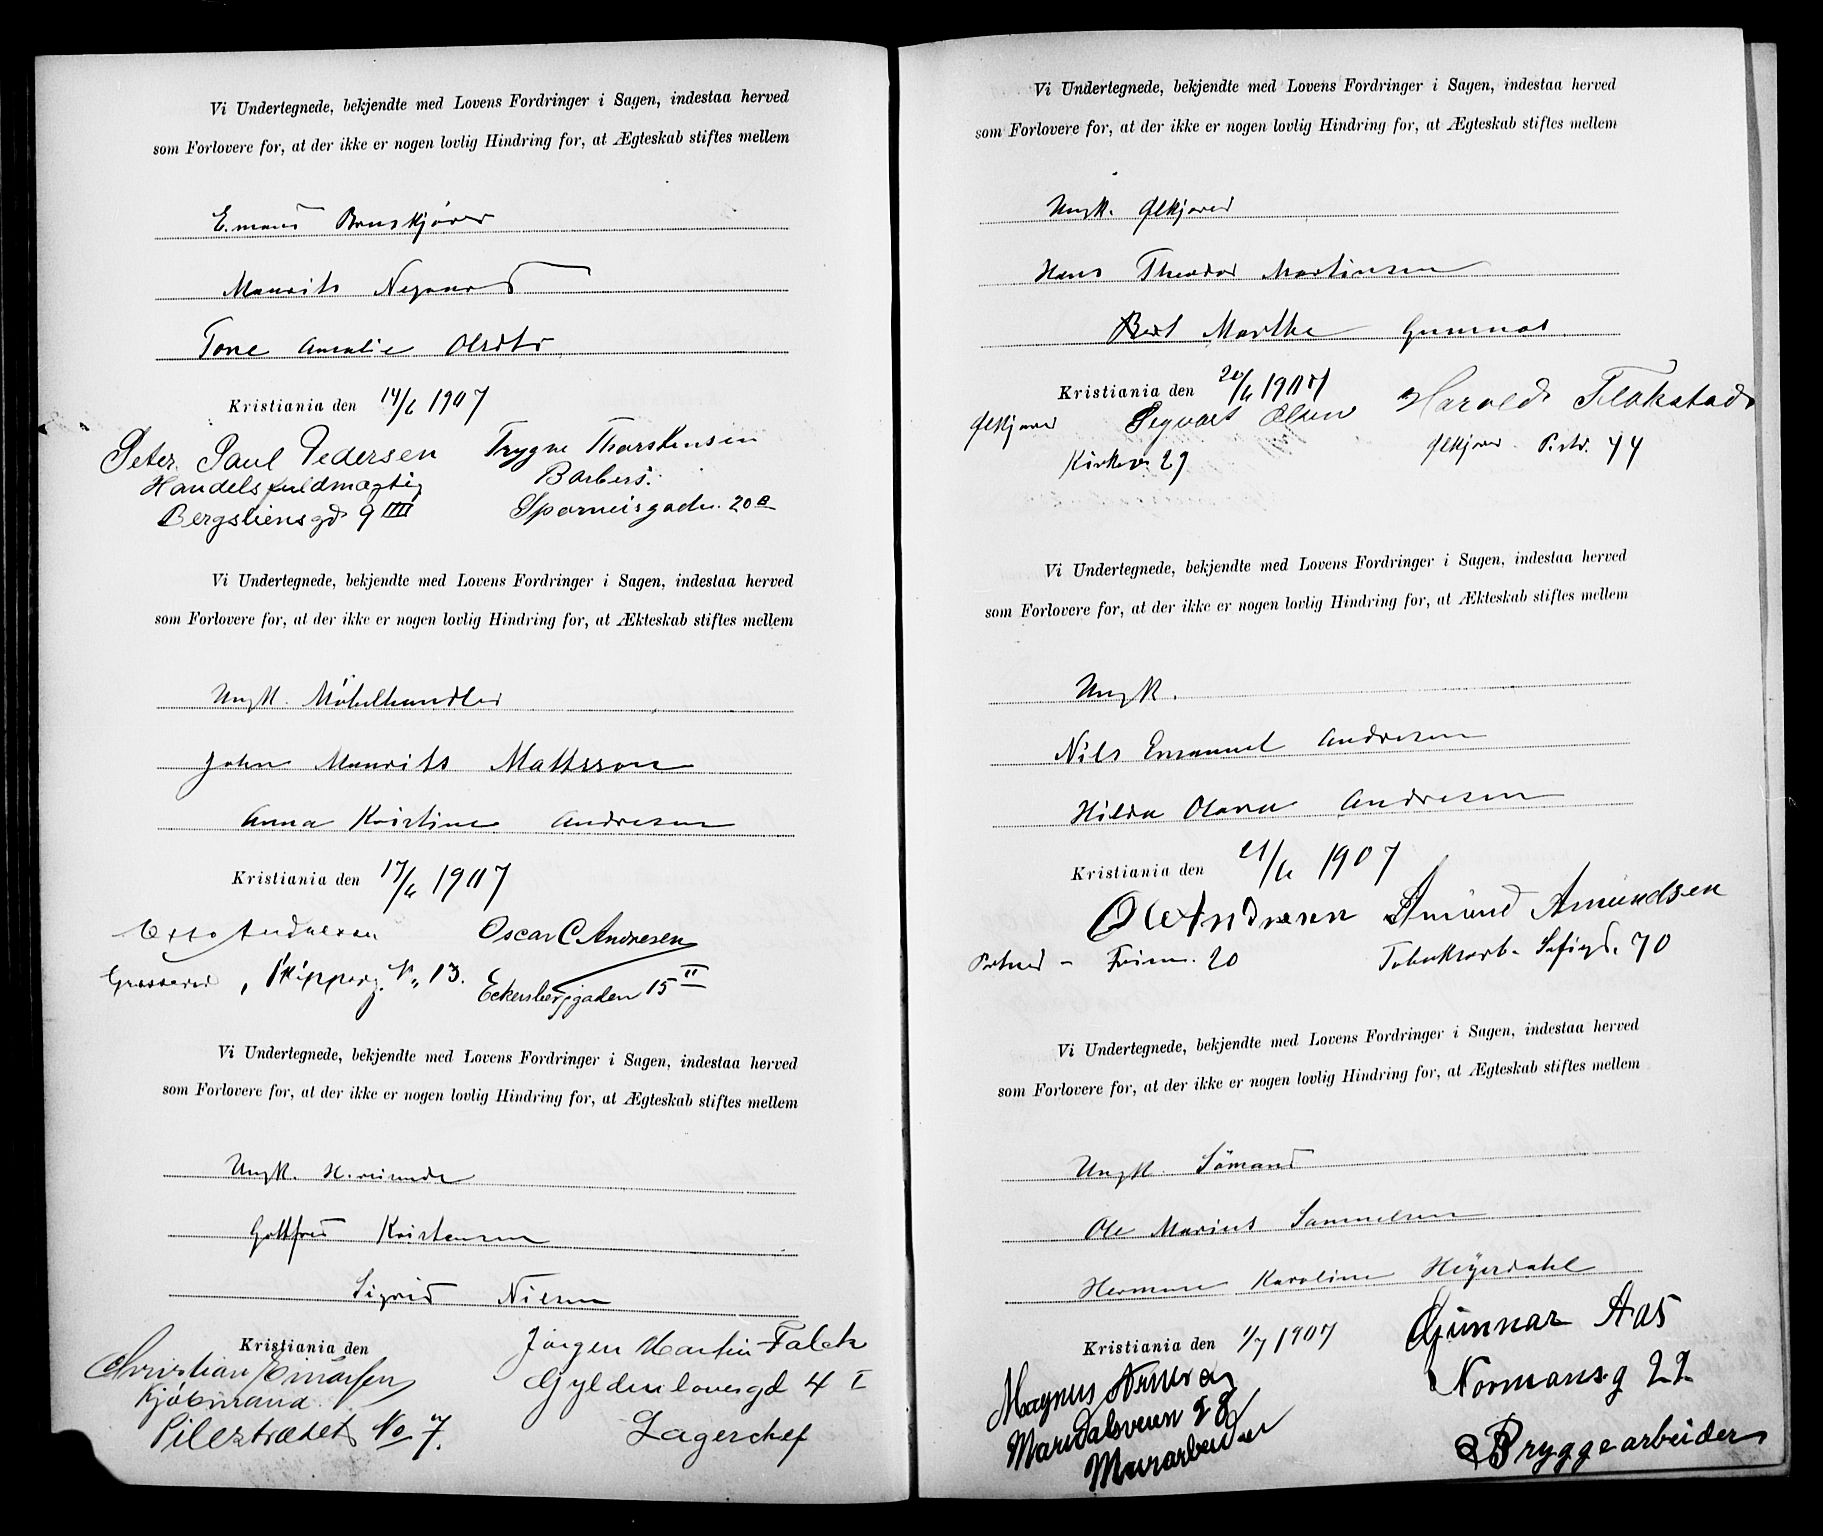 Vi Undertegnede, bekjendte med Lovens Fordringer i Sagen, indestaa herved
som Forlovere for, at der ikke er nogen lovlig Hindring for, at Ægteskab stiftes mellem
Maurits
Tone Amalie Olsdtr
Kristiania den 14/6 1907
Peter Paul Pedersen
Handelsfuldmægtig
Bergsliensgd 9 IIII
Trygve Thorstensen
Barber.
Sporveisgaden. 20 B
Vi Undertegnede, bekjendte med Lovens Fordringer i Sagen, indestaa herved
som Forlovere for, at der ikke er nogen lovlig Hindring for, at Ækteskab stiftes mellem
Ungk. Möbelhandler
John Maurits Mattsson
Anna Kristine Andresen
Kristiania den 17/6 1907
Otto Andresen
Grosserer, Skipperg. No 13.
Oscar C Andresen
Eckersbergsgaden 15 II
Vi Undertegnede, bekjendte med Lovens Fordringer i Sagen, indestaa herved
som Forlovere for, at der ikke er nogen lovlig Hindring for, at Ægteskab stiftes mellem
Ungk.
Gottfred Kristensen
Sigrid Nilsen
Kristiania den
Christian Einarsen
Kjöbmand
Pilestrædet No 7.
Jörgen Martin Falck
Gyldenlovesgd 4 I
Lagerchef
Vi Undertegnede, bekjendte med Lovens Fordringer i Sagen, indestaa herved
som Forlovere for, at der ikke er nogen lovlig Hindring for, at Ægteskab stiftes mellem
Ungk. Ølkjører
Hans Theodor Martinsen
Martha
Kristiania den 20/6 1907
Ølkjører Sigvart Olsen
Kirkev. 29
Harald Flakstad
Ølkjører 44
Vi Undertegnede, bekjendte med Lovens Fordringer i Sagen, indestaa herved
som Forlovere for, at der ikke er nogen lovlig Hindring for, at Ækteskab stiftes mellem
Ungk.
Nils Emanuel Andresen
Hilda Olava Andresen
Kristiania den 21/6 1907
O Andresen
20
Amund Amundsen
Tobaksarb. Sofiegd. 70
Vi Undertegnede, bekjendte med Lovens Fordringer i Sagen, indestaa herved
som Forlovere for, at der ikke er nogen lovlig Hindring for, at Ægteskab stiftes mellem
Ungk. Sömand
Ole Marius Samuelsen
Karoline Heyerdahl
Kristiania den 1/7 1907
Magnus
Maridalsveien
Murarbeider
Gunnar Aas
Normansg 22
Bryggearbeider